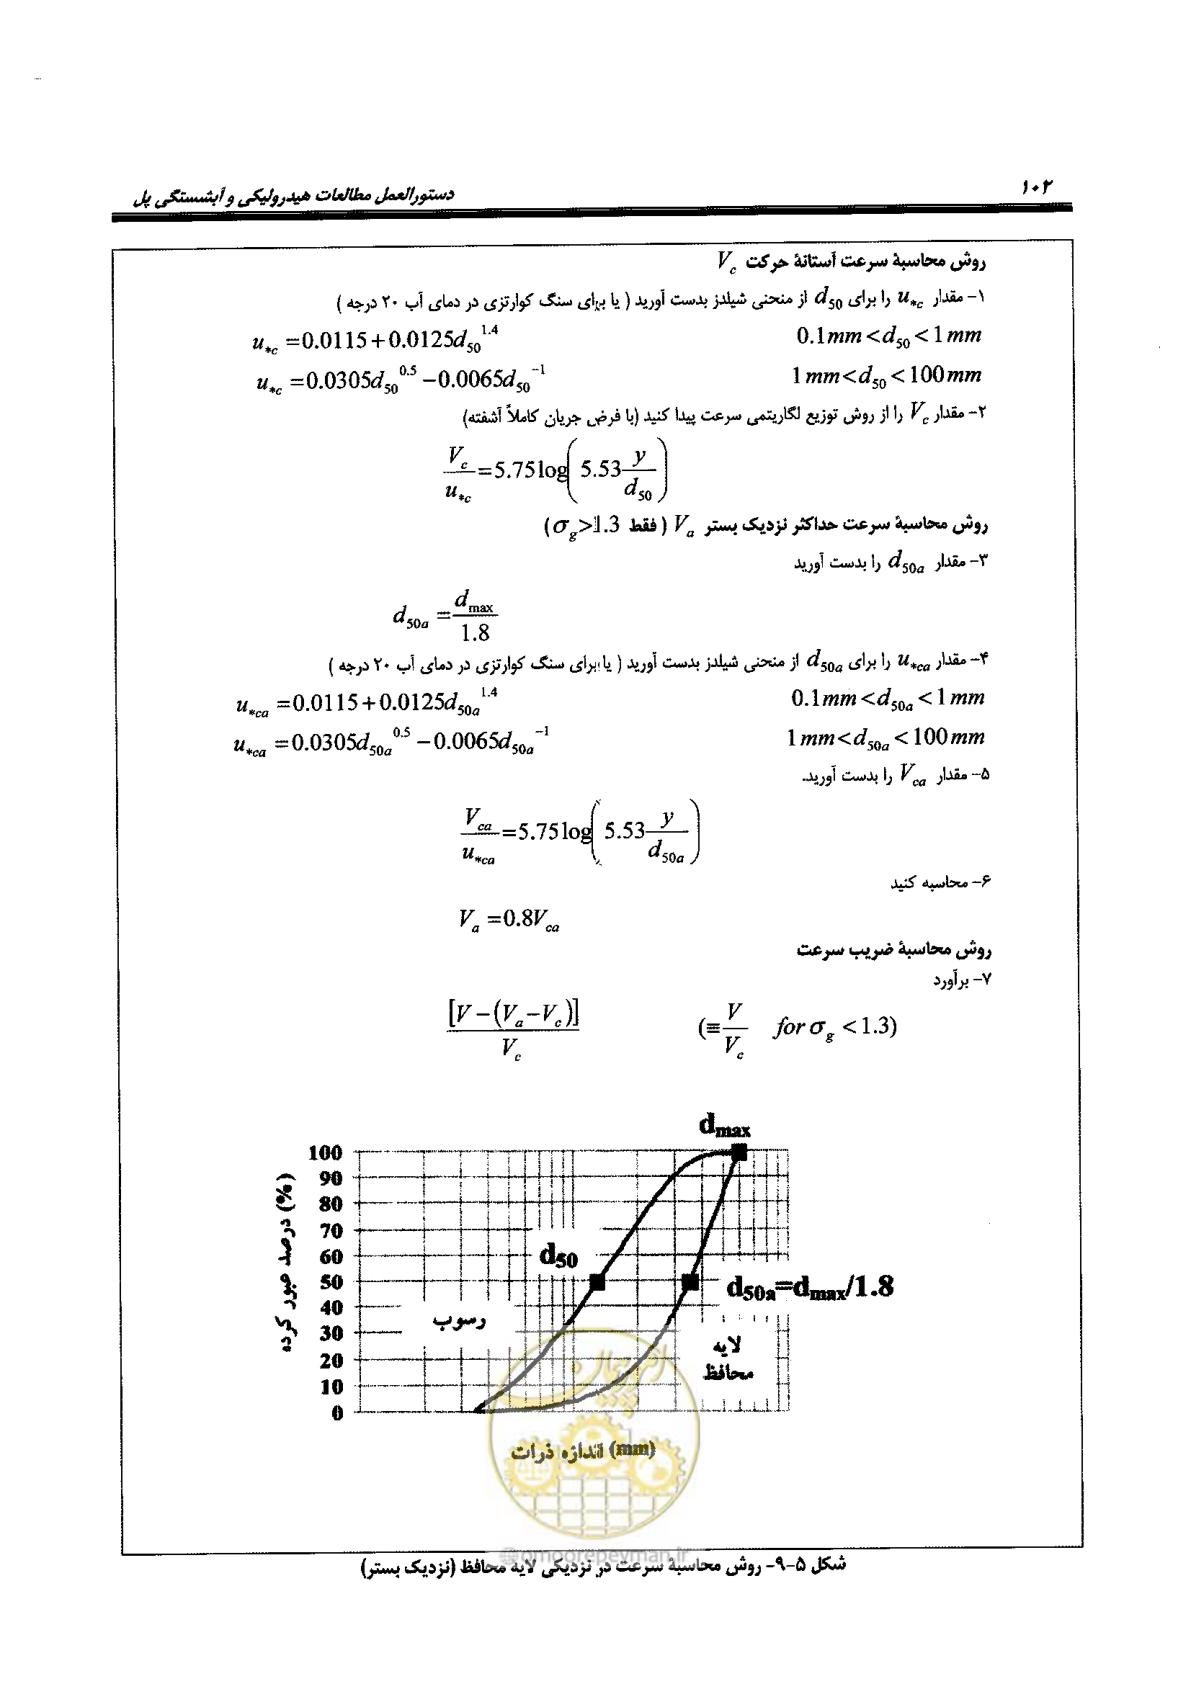 ۱۰۲
دستورالعمل مطالعات هیدرولیکی و آبشستگی پل
روش محاسبهٔ سرعت آستانهٔ حرکت V_c
۱- مقدار u_{*c} را برای d_{50} از منحنی شیلدز بدست آورید ( یا برای سنگ کوارتزی در دمای آب ۲۰ درجه )
u_{*c} =0.0115+0.0125d_{50}^{1.4} 0.1mm<d_{50}<1mm
u_{*c} =0.0305d_{50}^{0.5} −0.0065d_{50}^{−1} 1mm<d_{50}<100mm
۲- مقدار V_c را از روش توزیع لگاریتمی سرعت پیدا کنید (با فرض جریان کاملاً آشفته)
V_c/u_{*c} =5.75log(5.53 y/d_{50})
روش محاسبهٔ سرعت حداکثر نزدیک بستر V_a ( فقط σ_g>1.3 )
۳- مقدار d_{50a} را بدست آورید
d_{50a} = d_{max}/1.8
۴- مقدار u_{*ca} را برای d_{50a} از منحنی شیلدز بدست آورید ( یا برای سنگ کوارتزی در دمای آب ۲۰ درجه )
u_{*ca} =0.0115+0.0125d_{50a}^{1.4} 0.1mm<d_{50a}<1mm
u_{*ca} =0.0305d_{50a}^{0.5} −0.0065d_{50a}^{−1} 1mm<d_{50a}<100mm
۵- مقدار V_{ca} را بدست آورید.
V_{ca}/u_{*ca} =5.75log(5.53 y/d_{50a})
۶- محاسبه کنید
V_a =0.8V_{ca}
روش محاسبهٔ ضریب سرعت
۷- برآورد
[V−(V_a−V_c)]/V_c (≡V/V_c for σ_g <1.3)
d_{max}
100
90
80
70
60
50
40
30
20
10
0
درصد عبور کرده (%)
d_{50}
d_{50a}=d_{max}/1.8
رسوب
لایه
محافظ
اندازه ذرات (mm)
@omoorepeyman.ir
شکل ۵-۹- روش محاسبهٔ سرعت در نزدیکی لایه محافظ (نزدیک بستر)